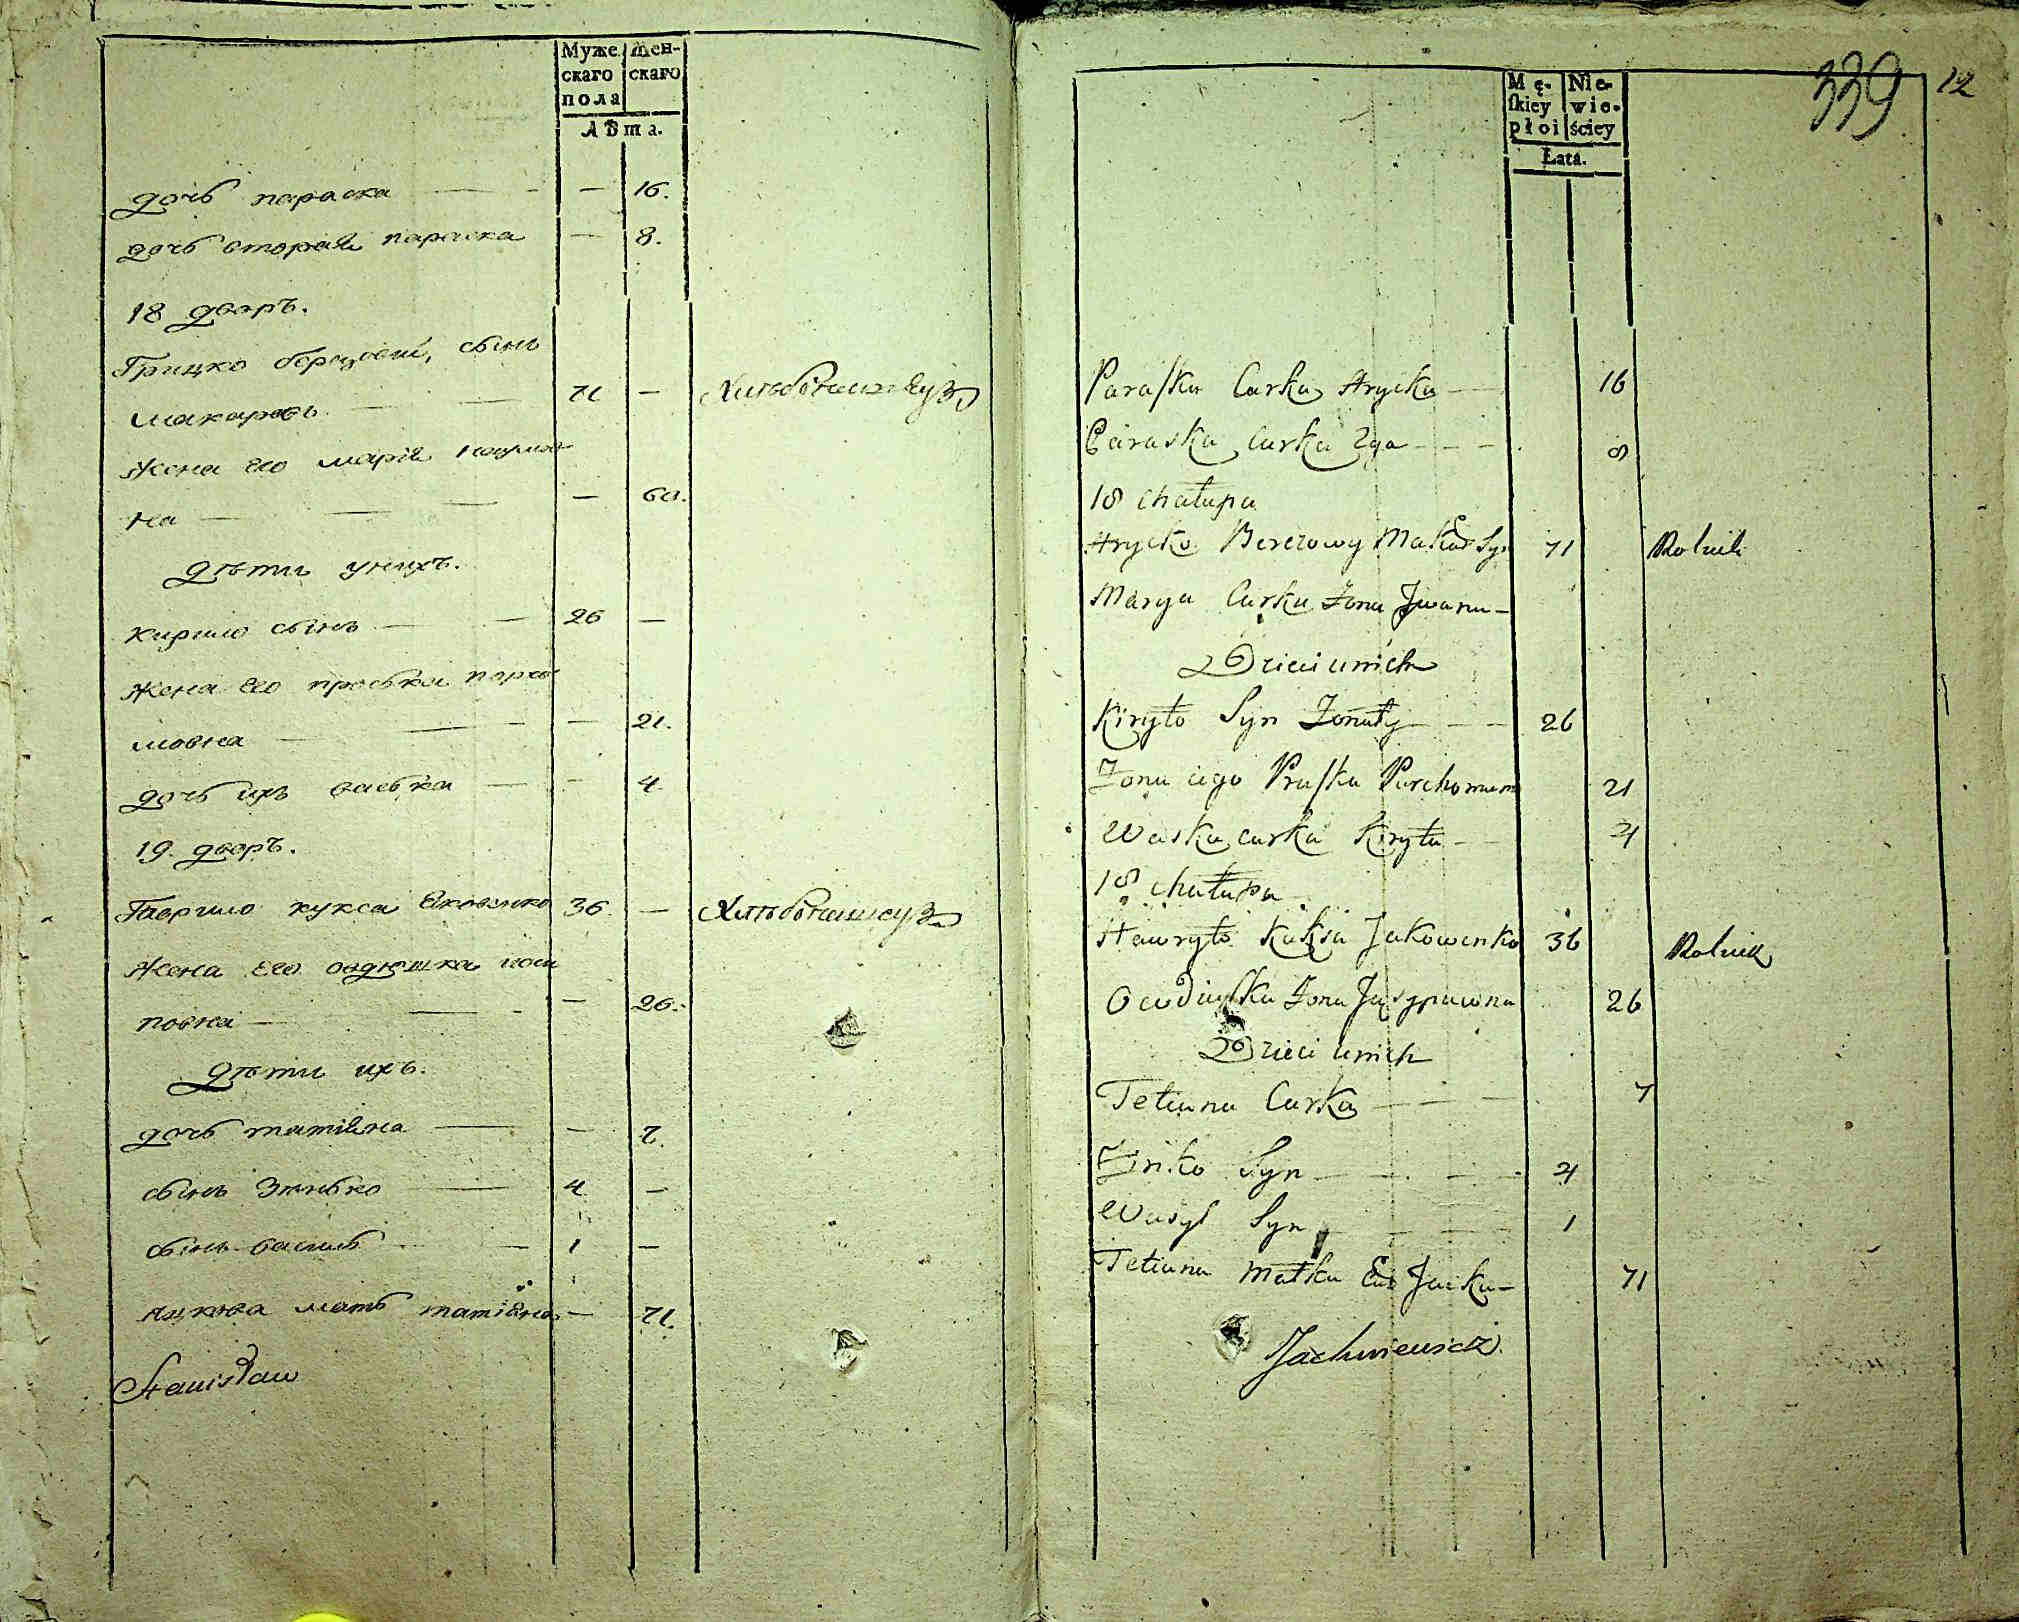 Муже | Жен-
скаго | скаго
пола
Лѣта.
дочь параска — — 16.
дочь вторая параска — 8.
18 дворъ.
Грицко березовий, сынъ
макаровъ — — 71 — Хлѣбопашецъ
Жена его марія наумов
на — — — — 60.
дѣти унихъ.
кирило сынъ — — 26 —
Жена его проська пархо
мовна — — — 21.
дочь ихъ васька — — 4.
19. дворъ.
Гаврило кукса Яковенко 36. — Хлѣбопашецъ
Жена его овдюшка иоси
повна — — — 26.
дѣти ихъ.
дочь татіяна — — 7.
сынъ Зѣнько — 4 —
сынъ василь — 1 —
яцкова мать татіяна — 71.
Stanisław
339 12
Mę- | Nie-
skiey | wie-
płci | ściey
Łata.
Paraska Curka Hrycka — 16
Paraska Curka 2ga — — 8
18 chałupa
Hrycko Berezowy Makar Syn 71 Rolnik
Marya Curka Żona Jwana —
Dzieci unich
Kiryło Syn Żonaty — — 26
Żona iego Praska Parchomowna 21
Waska curka Kiryła — 4
18 chałupa
Hawryło Kuksa Jakowenko 36 Rolnik
Owdiuszka Żona Jusypowna 26
Dzieci unich
Tetiana Curka — — — 7
Zinko Syn — — — 4
Wasyl Syn — — 1
Tetiana Matka Jacka — 71
Jachniewicz